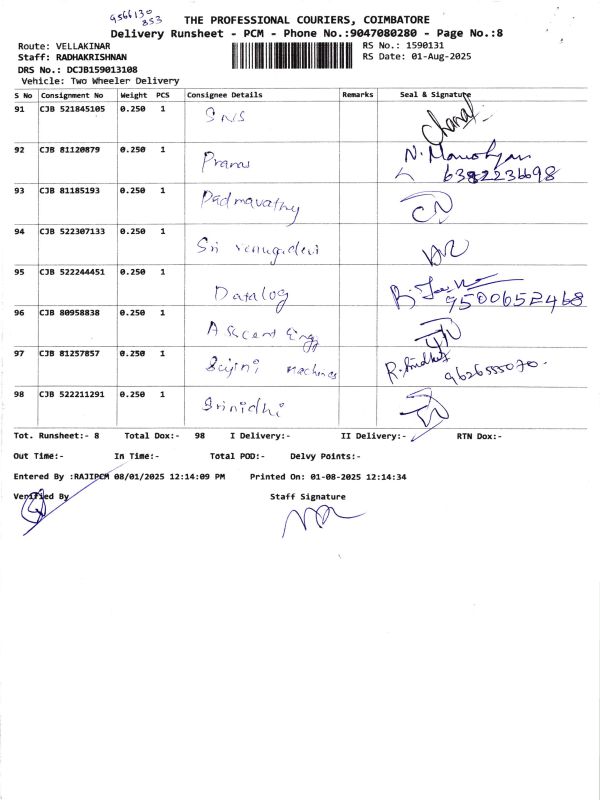 9566130
853
THE PROFESSIONAL COURIERS, COIMBATORE
Delivery Runsheet - PCM - Phone No.:9047080280 - Page No.:8
Route: VELLAKINAR
RS No.: 1590131
Staff: RADHAKRISHNAN
RS Date: 01-Aug-2025
DRS No.: DCJB159013108
Vehicle: Two Wheeler Delivery
S No Consignment No Weight PCS Consignee Details Remarks Seal & Signature
91 CJB 521845105 0.250 1 SNS
92 CJB 81120879 0.250 1 Pranas N. Manothyan
6382236698
93 CJB 81185193 0.250 1 Padmavathy
94 CJB 522307133 0.250 1 Sri venugadevi
95 CJB 522244451 0.250 1 Datalog
9500652468
96 CJB 80958838 0.250 1 Ascent Engg
97 CJB 81257857 0.250 1 Sujini Machines R. Sridhar
9626555070.
98 CJB 522211291 0.250 1 Srinidhi
Tot. Runsheet:- 8 Total Dox:- 98 I Delivery:- II Delivery:- RTN Dox:-
Out Time:- In Time:- Total POD:- Delvy Points:-
Entered By :RAJIPCM 08/01/2025 12:14:09 PM Printed On: 01-08-2025 12:14:34
Verified By Staff Signature